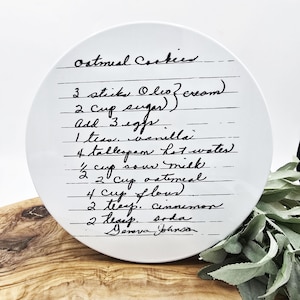 Oatmeal Cookies
3 sticks Oleo } cream)
2 cup sugar)
Add 3 eggs
1 teas. vanilla
4 tablespoon hot water
½ cup sour milk
2 cup oatmeal
4 cup flour
2 teasp. cinnamon
2 teasp. soda
Geneva Johnson